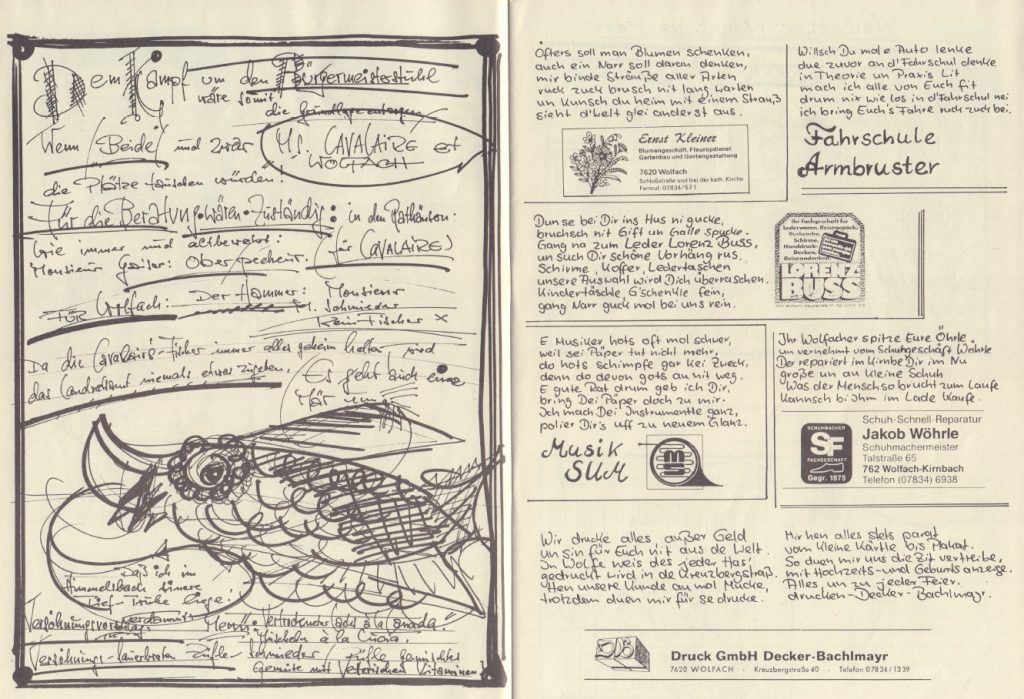 Dem Kampf um den Bürgermeisterstuhl
wäre somit
die Grundlage entzogen
Wenn (Beide) und zwar
Mr. CAVALAIRE et
WOLFACH
die Plätze tauschen würden!
Für die Beratung wären Zuständig: in den Rathäuser:
Wie immer und altbewährt: für CAVALAIRE)
Monsieur
FÜR Wolfach: Der Hammer: Monsieur
M. Schmieder
Kein Fischer x
Da die Cavalaire-Fischer immer alles geheim halten, wird
das Landratsamt niemals etwas zugeben.
Es geht auch eine
Mär
Daß ich im
Himmelsbach seinere
Lief-Trübe liege!
verdammte
Versöhnungsvorschlag: Menü: à la
à la
Versöhnungs-Sauerbraten
Gemüse mit Vitaminen
Öfters soll man Blumen schenken,
auch ein Narr soll daran denken,
mir binde Sträuße aller Arten
ruck zuck brusch nit lang warten
un Kunsch du heim mit einem Strauß
sieht d'Welt glei anderst aus.
Ernst Kleiner
Blumengeschäft, Fleuropdienst
Gartenbau und Gartengestaltung
7620 Wolfach
Schloßstraße und bei der kath. Kirche
Fernruf: 07834/571
Willsch Du mol e Auto lenke
due zuvor an d'Fahrschul denke
in Theorie un Praxis Lit
mach ich alle von Euch fit
drum nix wie los in d'Fahrschul nei
ich bring Euch's Fahre ruck zuck bei.
Fahrschule
Armbruster
Dun se bei Dir ins Hus ni gucke,
bruchsch nit Gift un Galle spucke.
Gang na zum Leder Lorenz Buss,
un such Dir schöne Vorhäng rus.
Schirme, Koffer, Ledertaschen
unsere Auswahl wird Dich überraschen.
Kindertäschle G'schenkle fein,
gang Narr guck mol bei uns rein.
Ihr Fachgeschäft für
Lederwaren, Reisegepäck,
Rucksäcke,
Schirme,
Handdruck-
Decken,
Reiseandenken
LORENZ
BUSS
E Musiker hots oft mol schwer,
weil sei Päper tut nicht mehr,
do hots schimpfe gar kei Zweck,
denn do devon gots au nit weg.
E gute Rat drum geb ich Dir,
bring Dei Päper doch zu mir.
Ich mach Dei Instrumentle ganz,
polier Dir's uff zu neuem Glanz.
Musik
SUM
Ihr Wolfacher spitze Eure Öhrle
un vernehmt vom Schuhgeschäft Wöhrle
Der repariert im Kirnbe Dir im Nu
große un au kleine Schuh
Was der Mensch so brucht zum Laufe
Kannsch bi ihm im Lade Kaufe.
SCHUHMACHER
SF
FACHGESCHÄFT
Gegr. 1875
Schuh-Schnell-Reparatur
Jakob Wöhrle
Schuhmachermeister
Talstraße 65
762 Wolfach-Kirnbach
Telefon (07834) 6938
Wir drucke alles außer Geld
un sin für Euch nit aus de Welt.
In Wolfe weis des jeder Has'
gedruckt wird in de Kreuzbergstraß.
Hen unsere Kunde au mol Mucke,
trotzdem duen mir für se drucke.
Mir hen alles stets parat
vom kleine Kärtle bis Plakat.
So duen mir uns die Zit vertreibe,
mit Hochzeits- und Geburtsanzeige.
Alles un zu jeder Feier,
drucken - Decker - Bachlmayr.
Druck GmbH Decker-Bachlmayr
7620 WOLFACH - Kreuzbergstraße 40 - Telefon 07834/1339